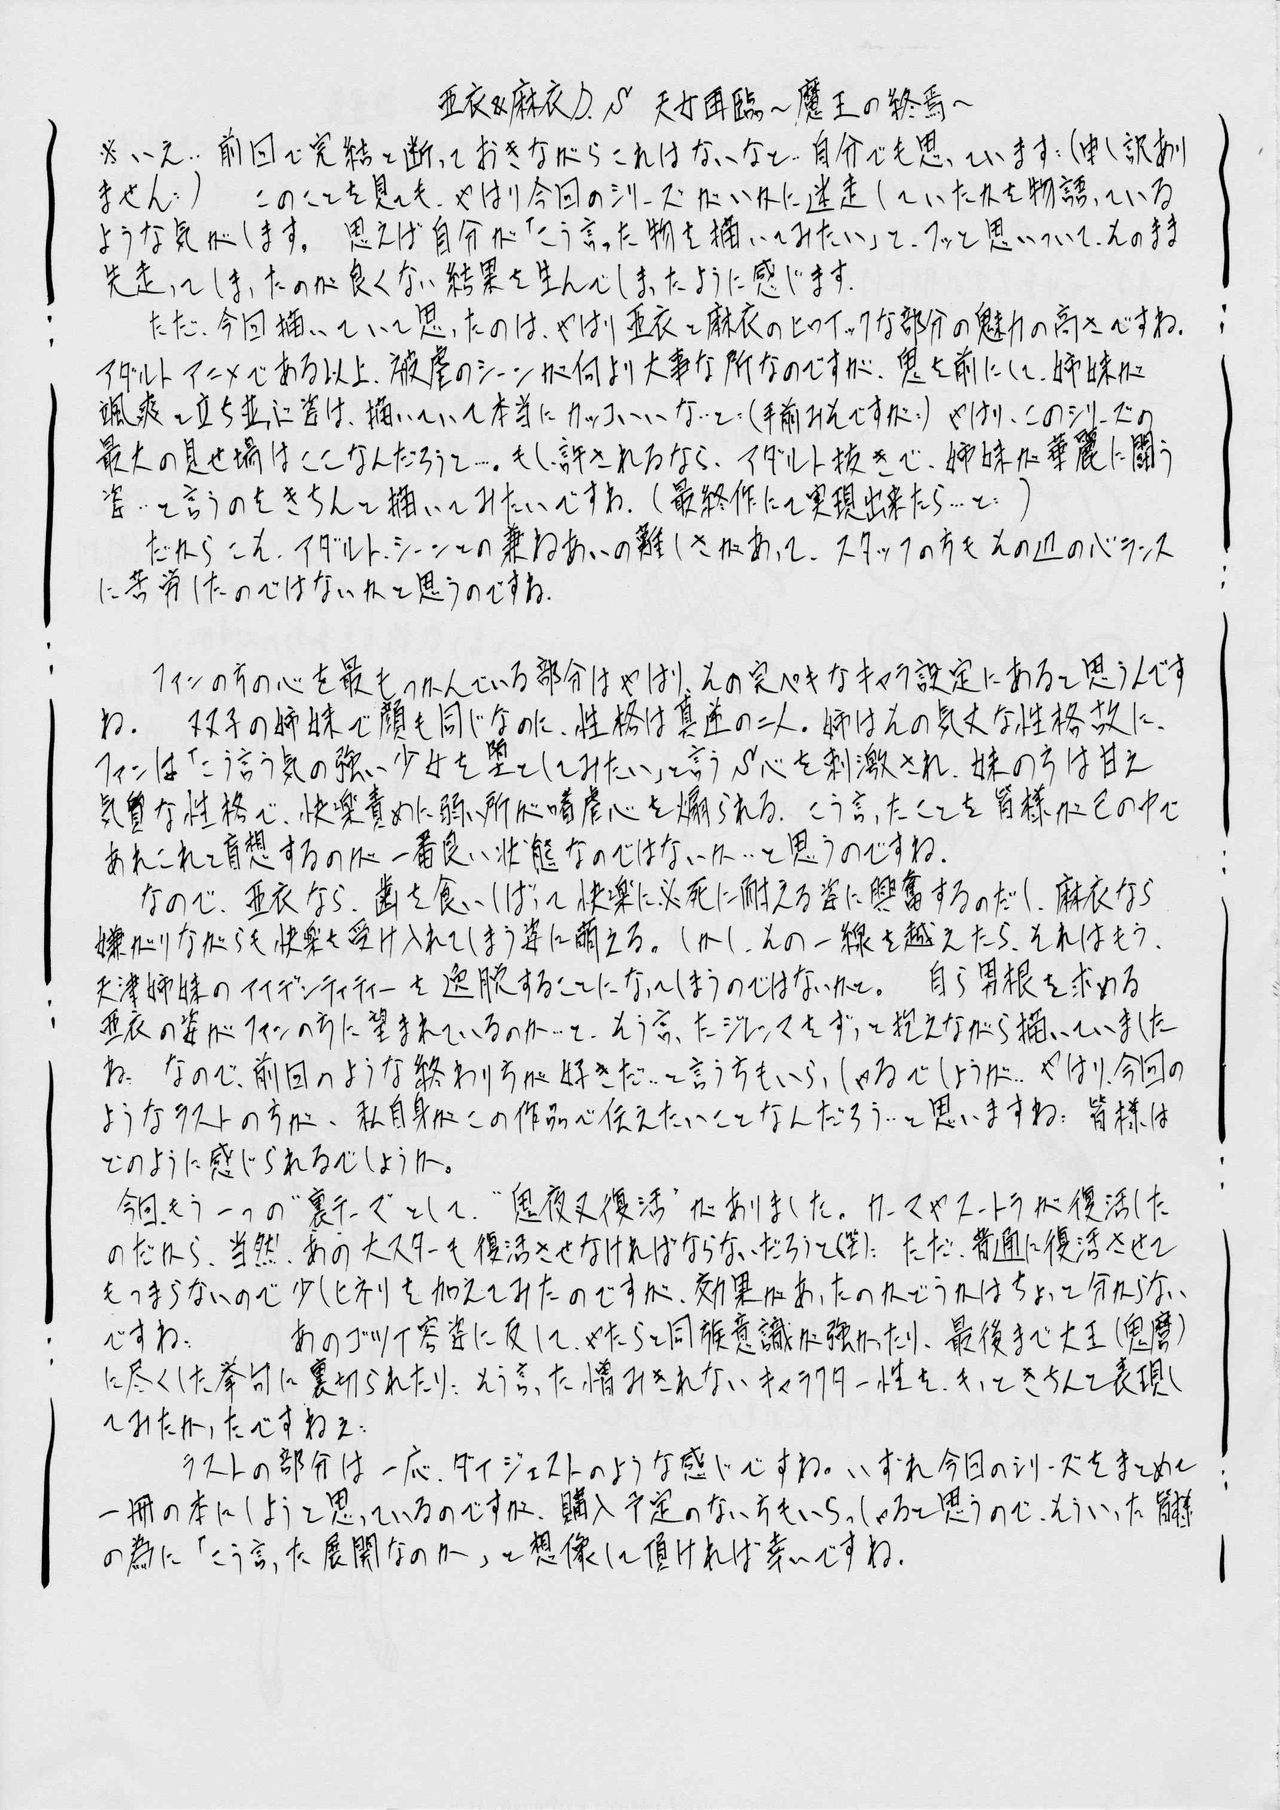 亜衣&麻衣D.S 天女再臨～魔王の終焉～
※いえ‥前回で完結と断っておきながらこれはないなと‥自分でも思っています‥(申し訳あり
ません‥) このことを見ても、やはり今回のシリーズがいかに迷走していたかを物語っている
ような気がします。 思えば自分が「こう言った物を描いてみたい」と、フッと思いついて、そのまま
先走ってしまったのが良くない結果を生んでしまったように感じます.
ただ、今回描いていて思ったのは、やはり亜衣と麻衣のヒロイックな部分の魅力の高さですね.
アダルトアニメである以上、被虐のシーンが何より大事な所なのですが、鬼を前にして、姉妹が
颯爽と立ち並ぶ姿は、描いていて本当にカッコいいな‥と‥(手前みそですが‥) やはり、このシリーズの
最大の見せ場はここなんだろうと…。もし許されるなら、アダルト抜きで、姉妹が華麗に闘う
姿‥と言うのをきちんと描いてみたいですね.(最終作にて実現出来たら…と‥)
だからこそ、アダルト、シーンとの兼ねあいの難しさがあって、スタッフの方もその辺のバランス
に苦労したのではないかと思うのですね.
ファンの方の心を最もつかんでいる部分はやはり、その完ペキなキャラ設定にあると思うんです
ね. 双子の姉妹で顔も同じなのに、性格は真逆の二人。姉はその気丈な性格故に、
ファンは「こう言う気の強い少女を堕としてみたい」と言うS心を刺激され、妹の方は甘え
気質な性格で、快楽責めに弱い所が嗜虐心を煽られる. こう言ったことを皆様が己の中で
あれこれと盲想するのが一番良い状態なのではないか‥と思うのですね.
なので、亜衣なら、歯を食いしばって快楽に必死に耐える姿に興奮するのだし、麻衣なら
嫌がりながらも快楽を受け入れてしまう姿に萌える。しかし、その一線を越えたら、それはもう、
天津姉妹のアイデンティティーを逸脱することになってしまうのではないかと。 自ら男根を求める
亜衣の姿がファンの方に望まれているのか…と、そう言ったジレンマをずっと抱えながら描いていました
ね‥ なので、前回のような終わり方が好きだ‥と言う方もいらっしゃるでしょうが‥ やはり、今回の
ようなラストの方が、私自身がこの作品で伝えたいことなんだろう‥と思いますね‥ 皆様は
どのように感じられるでしょうか。
今回、もう一つの"裏テーマ"として、"鬼夜叉復活"がありました。カーマやスートラが復活した
のだから、当然、あの大スターも復活させなければならないだろうと(笑)‥ ただ、普通に復活させて
もつまらないので少しヒネリを加えてみたのですが、効果があったのかどうかはちょっと分からない
ですね‥ あのゴツイ容姿に反して、やたらと同族意識が強かったり、最後まで大王(鬼麿)
に尽くした挙句に裏切られたり‥そう言った憎みきれないキャラクター性を、もっときちんと表現し
てみたかったですねぇ‥
ラストの部分は一応、ダイジェストのような感じですね。いずれ今回のシリーズをまとめて
一冊の本にしようと思っているのですが、購入予定のない方もいらっしゃると思うので、そういった皆様
の為に「こう言った展開なのか」と想像して頂ければ幸いですね.